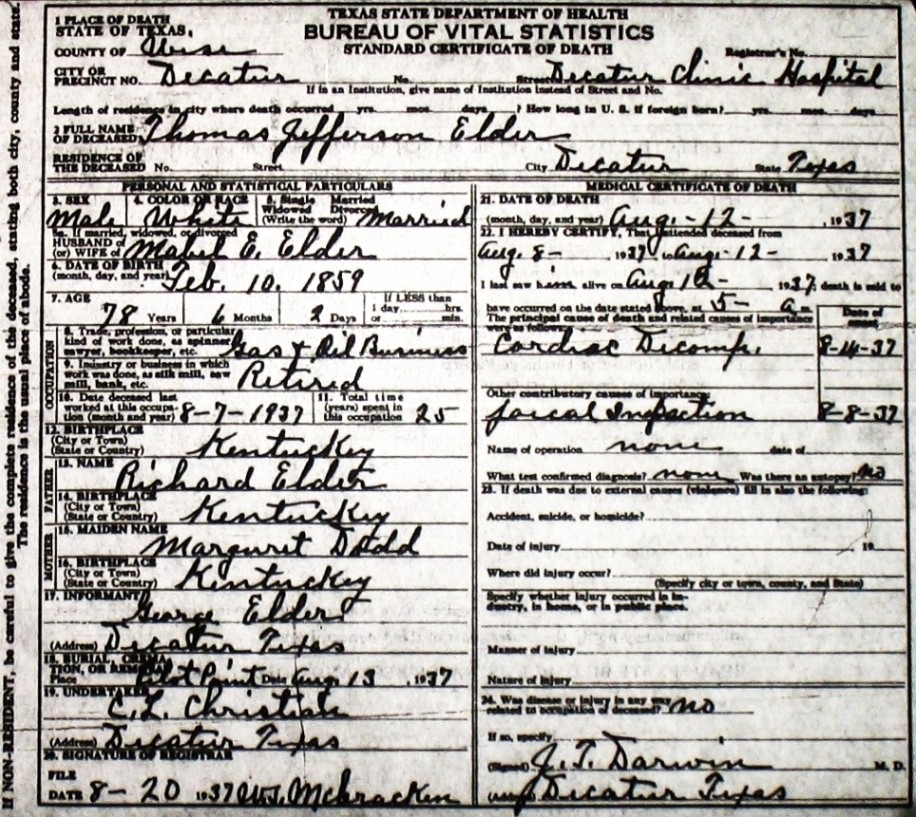 TEXAS STATE DEPARTMENT OF HEALTH
BUREAU OF VITAL STATISTICS
STANDARD CERTIFICATE OF DEATH
1 PLACE OF DEATH
STATE OF TEXAS,
COUNTY OF Wise Registrar's No.
CITY OR PRECINCT NO. Decatur No. Street Decatur Clinic Hospital
If in an Institution, give name of Institution instead of Street and No.
Length of residence in city where death occurred yrs. mos. days ? How long in U. S. if foreign born? yrs. mos. days
2 FULL NAME OF DECEASED Thomas Jefferson Elder
RESIDENCE OF THE DECEASED No. Street City Decatur State Texas
PERSONAL AND STATISTICAL PARTICULARS
3. SEX Male 4. COLOR OR RACE White 5. Single Married Widowed Divorced (Write the word) Married
5a. If married, widowed, or divorced
HUSBAND of (or) WIFE of Mabel E. Elder
6. DATE OF BIRTH (month, day, and year) Feb. 10. 1859
7. AGE 78 Years 6 Months 2 Days If LESS than 1 day hrs. or min.
OCCUPATION
8. Trade, profession, or particular kind of work done, as spinner sawyer, bookkeeper, etc. Gas & Oil Business
9. Industry or business in which work was done, as silk mill, saw mill, bank, etc. Retired
10. Date deceased last worked at this occupation (month and year) 8-7-1937 11. Total time (years) spent in this occupation 25
12. BIRTHPLACE (City or Town) (State or Country) Kentuckey
FATHER
13. NAME Richard Elder
14. BIRTHPLACE (City or Town) (State or Country) Kentuckey
MOTHER
15. MAIDEN NAME Margaret Dodd
16. BIRTHPLACE (City or Town) (State or Country) Kintuckey
17. INFORMANT George Elder
(Address) Decatur Texas
18. BURIAL, CREMATION, OR REMOVAL
Place Pilot Point Date Aug. 13, 1937
19. UNDERTAKER C. L. Christian
(Address) Decatur Texas
20. SIGNATURE OF REGISTRAR
FILE DATE 8-20 1937 McCracken
MEDICAL CERTIFICATE OF DEATH
21. DATE OF DEATH
(month, day, and year) Aug.-12-, 1937
22. I HEREBY CERTIFY, That I attended deceased from
Aug. 8- 1937 to Aug-12- 1937
I last saw him alive on Aug 12- 1937, death is said to
have occurred on the date stated above, at 5- a m.
The principal causes of death and related causes of importance were as follows: Date of onset
Cardiac Dicomp. 8-14-37
Other contributory causes of importance
Faical Infection 8-8-37
Name of operation none date of
What test confirmed diagnosis? none Was there an autopsy? no
23. If death was due to external causes (violence) fill in also the following:
Accident, suicide, or homicide?
Date of injury 19
Where did injury occur?
(Specify city or town, county, and State)
Specify whether injury occurred in industry, in home, or in public place.
Manner of injury
Nature of injury
24. Was disease or injury in any way related to occupation of deceased? no
If so, specify
(Signed) J. T. Darwin M. D.
Decatur Texas
If NON-RESIDENT, be careful to give the complete residence of the deceased, stating both city, county and state.
The residence is the usual place of abode.